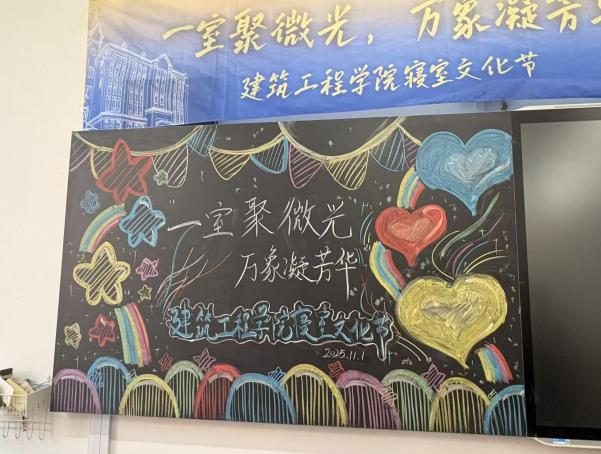 一室聚微光，万象凝芳
建筑工程学院寝室文化节
一室聚微光
万象凝芳华
建筑工程学院寝室文化节
2025.11.1